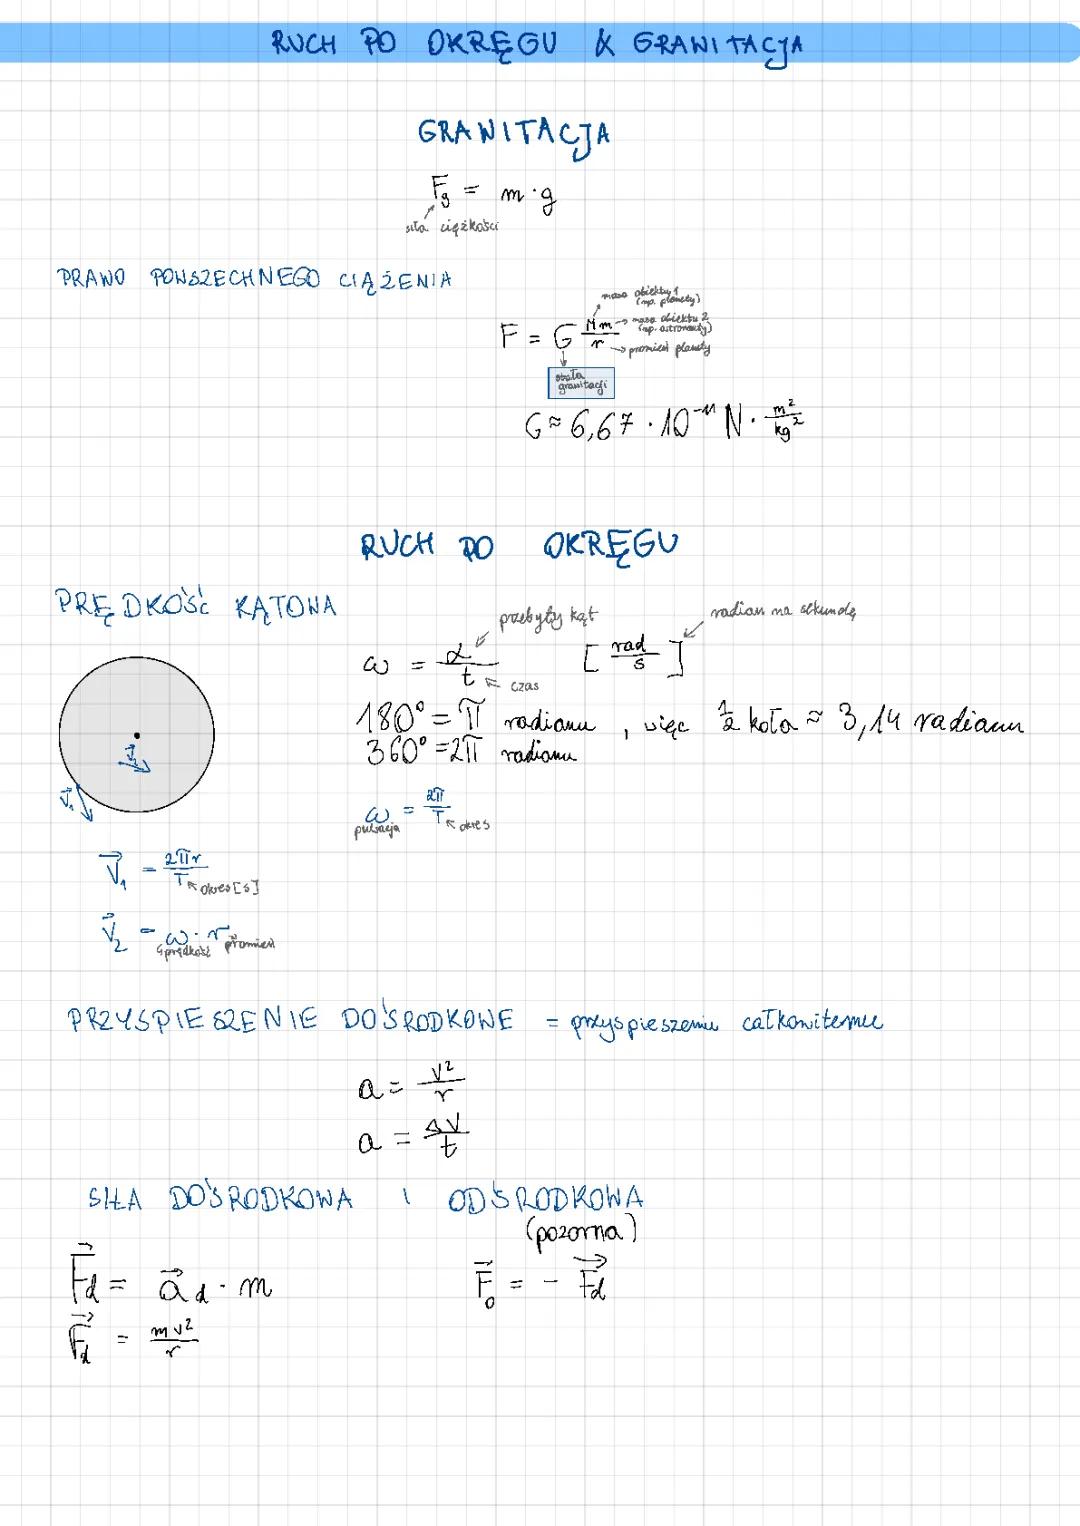 RUCH PO OKRĘGU & GRAWITACJA
GRAWITACJA
Fg = m·g
siła ciężkości
PRAWO POWSZECHNEGO CIĄŻENIA
masa obiektu 1
(np. planety)
F = G Mm/r
masa obiektu 2
(np. astronauty)
promień planety
stała
grawitacji
G ≈ 6,67 · 10⁻¹¹ N · m²/kg²
RUCH PO OKRĘGU
PRĘDKOŚĆ KĄTOWA
przebyty kąt
radian na sekundę
ω = α/t [rad/s]
czas
180° = π radianu , więc 1/2 koła ≈ 3,14 radianu
360° = 2π radianu
ω = 2π/T
pulsacja
okres
V₁ = 2πr/T
okres [s]
V₂ = ω · r
prędkość promień
PRZYSPIESZENIE DOŚRODKOWE = przyspieszeniu całkowitemu
a = V²/r
a = ΔV/t
SIŁA DOŚRODKOWA I ODŚRODKOWA
(pozorna)
Fd = ad · m
Fo = - Fd
Fd = mv²/r